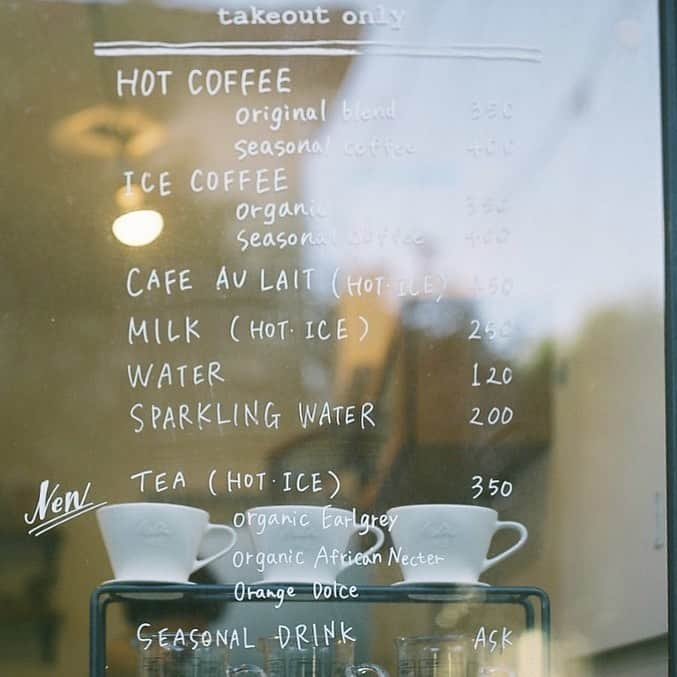 takeout only
HOT COFFEE
original blend 350
seasonal coffee 400
ICE COFFEE
organic 350
seasonal coffee 400
CAFE AU LAIT (HOT·ICE) 450
MILK (HOT·ICE) 250
WATER 120
SPARKLING WATER 200
New TEA (HOT·ICE) 350
Organic Earlgrey
Organic African Necter
Orange Dolce
SEASONAL DRINK ASK